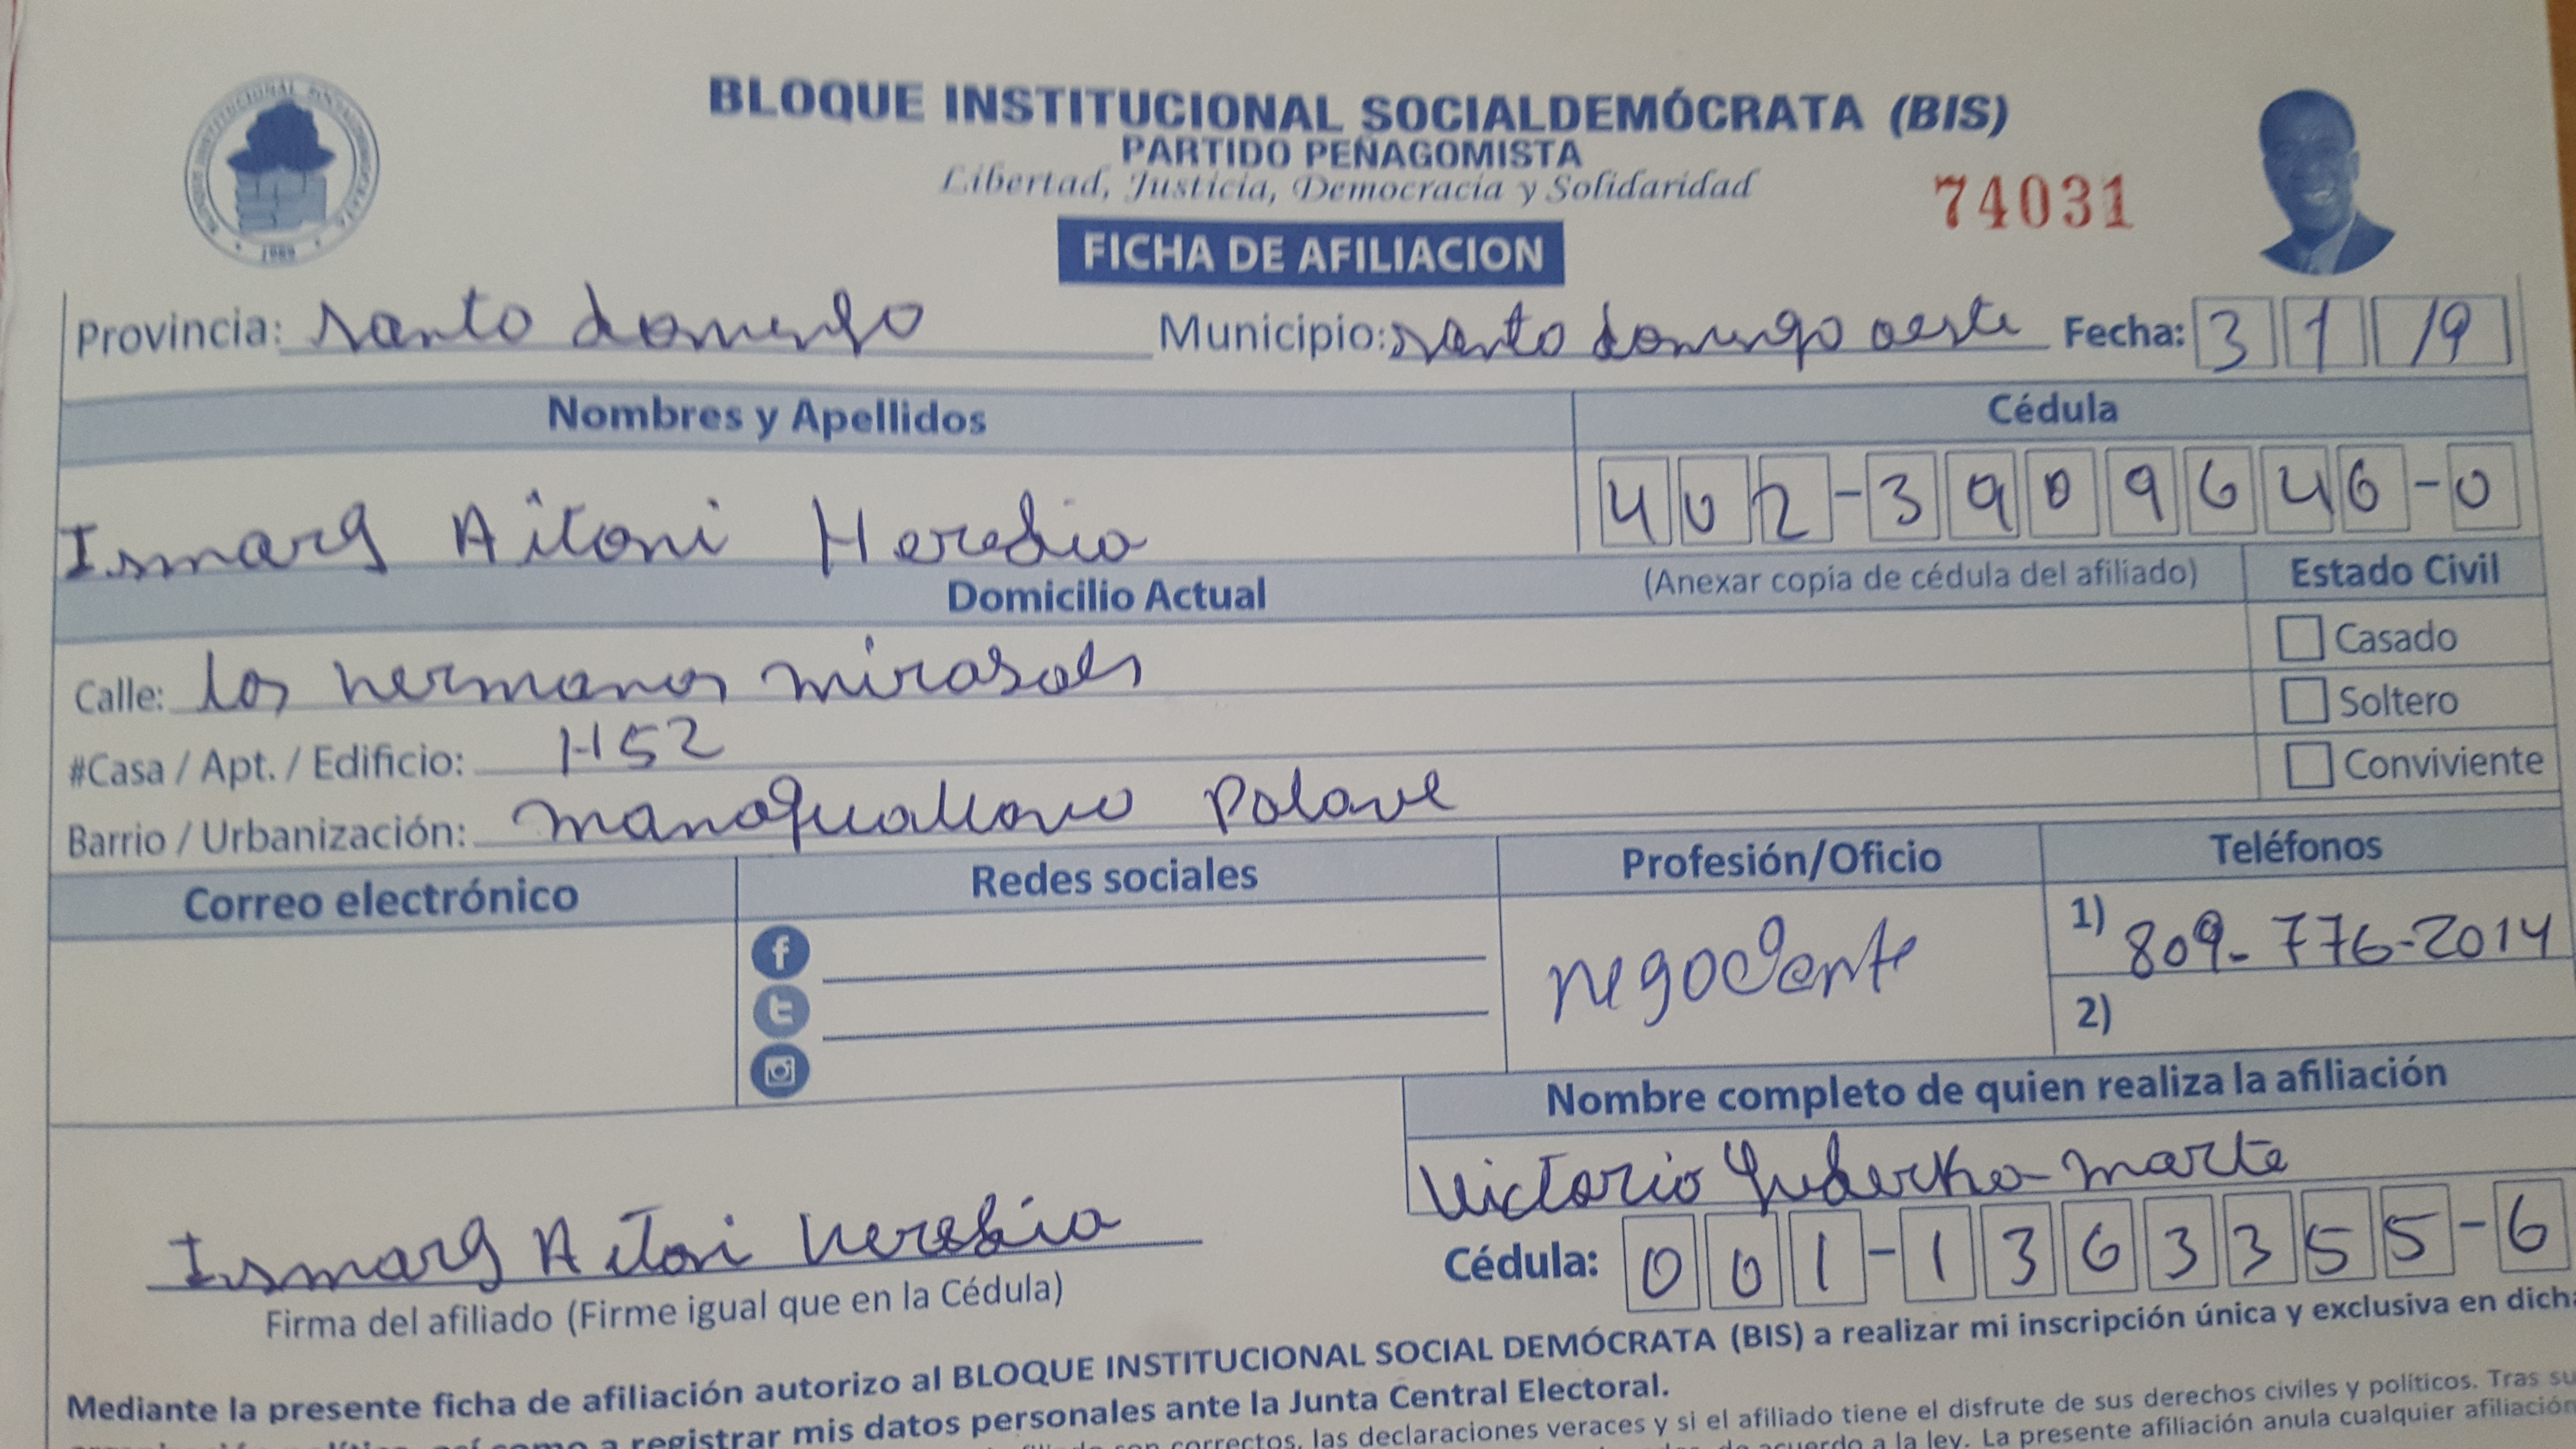 BLOQUE INSTITUCIONAL SOCIALDEMÓCRATA (BIS)
PARTIDO PEÑAGOMISTA
Libertad, Justicia, Democracia y Solidaridad
74031
FICHA DE AFILIACION
Provincia: santo domingo Municipio: santo domingo oeste Fecha: 3 1 19
Nombres y Apellidos Cédula
Ismarg Aitoni Heredia 402-3909646-0
Domicilio Actual (Anexar copia de cédula del afiliado) Estado Civil
Casado
Calle: los hermanos mirasoles
Soltero
#Casa / Apt. / Edificio: H52
Conviviente
Barrio / Urbanización: manoguallavo Palave
Correo electrónico Redes sociales Profesión/Oficio Teléfonos
negociante 1) 809-776-2014
2)
Nombre completo de quien realiza la afiliación
Victorio Marte
Ismarg Aitoni Heredia
Cédula: 001-1363355-6
Firma del afiliado (Firme igual que en la Cédula)
Mediante la presente ficha de afiliación autorizo al BLOQUE INSTITUCIONAL SOCIAL DEMÓCRATA (BIS) a realizar mi inscripción única y exclusiva en dicha
a registrar mis datos personales ante la Junta Central Electoral.
correctos, las declaraciones veraces y si el afiliado tiene el disfrute de sus derechos civiles y políticos. Tras su
de acuerdo a la ley. La presente afiliación anula cualquier afiliación